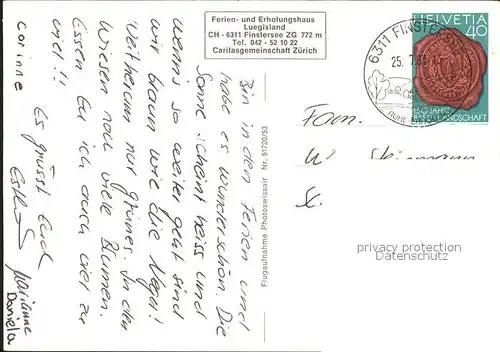 Ferien- und Erholungshaus
Luegisland
CH - 6311 Finstersee ZG 772 m
Tel. 042 - 52 10 22
Caritasgemeinschaft Zürich
HELVETIA
40
150 JAHRE
BASEL-LANDSCHAFT
6311 FINSTERSEE
25. 7.
Bin in den Ferien und
habe es wunderschön. Die
Sonne scheint heiss und
wenns so weiter geht sind
wir braun wie die Neger!
Weitherum nur grünes. In den
Wiesen noch viele Blumen.
Essen tu ich auch viel zu
viel!!
Es grüsst Euch
Esther
Marianne
Daniela
Corinne
Flugaufnahme Photoswissair Nr. 51720/53
Fam.
W.
privacy protection
Datenschutz